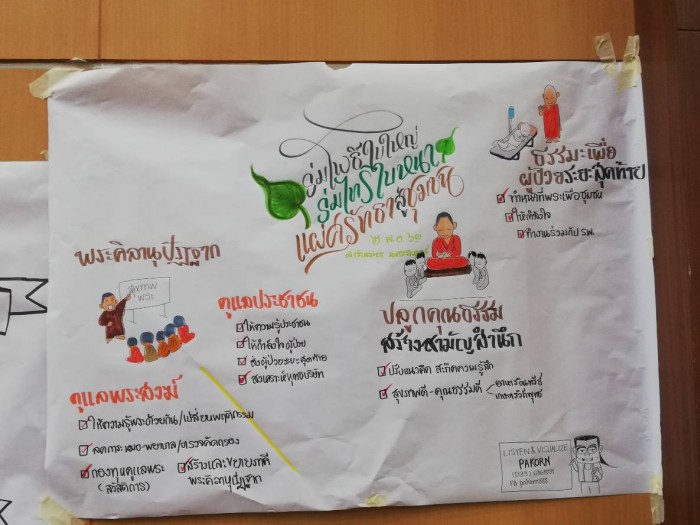 ร่มโพธิ์ใบใหญ่
ร่มไทรใบหนา
แผ่ศรัทธาสู่ชุมชน
ธรรมะเพื่อ
ผู้ป่วยระยะสุดท้าย
ทำหน้าที่พระเพื่อชุมชน
ให้กำลังใจ
ทำงานร่วมกับ รพ.
พระคิลานุปัฏฐาก
สุขภาพ
พระ
ดูแลประชาชน
ให้ความรู้ประชาชน
ให้กำลังใจผู้ป่วย
ส่งผู้ป่วยระยะสุดท้าย
ปลูกคุณธรรม
สร้างสามัญสำนึก
ปรับแนวคิด สะกิดความรู้สึก
สุขภาพดี-คุณธรรมดี
ดูแลพระสงฆ์
ให้ความรู้พระด้วยกัน/เปลี่ยนพฤติกรรม
ลดภาระหมอ-พยาบาล/ตรวจคัดกรอง
กองทุนดูแลพระ
(สวัสดิการ)
สร้างและขยายภาคี
พระคิลานุปัฏฐาก
LISTEN & VISUALIZE
PAKORN